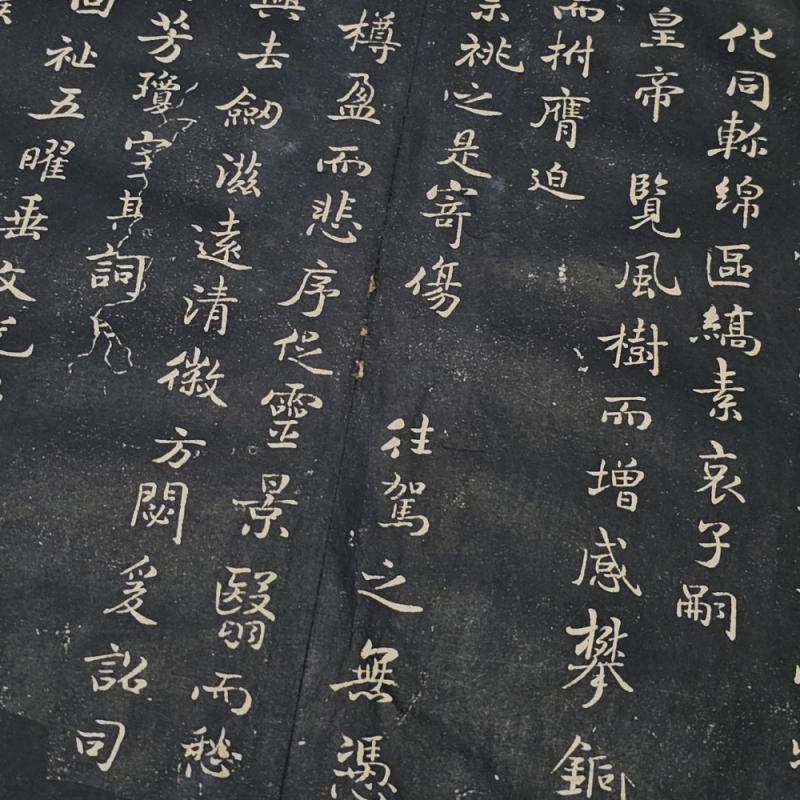 化同軫綿區縞素哀子嗣
皇帝 覽風樹而增感攀銅
而拊膺迫
宗祧之是寄傷 往駕之無憑
樽盈而悲序促靈景翳而愁
去劔滋遠清徽方閟爰詔司
芳瓊字其詞曰
祉五曜垂文